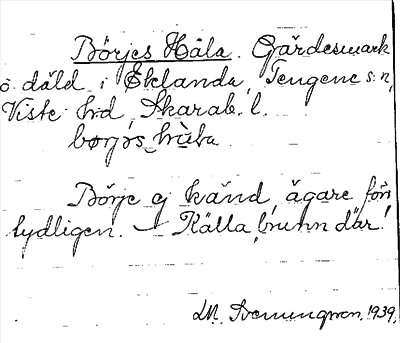 Börjes Håla. Gärdesmark
o däld i Eklanda, Tengene s:n,
Viste hd, Skarab. l.
Börje ej känd, ägare för
tydligen. — Källa, brunn där!
1939.